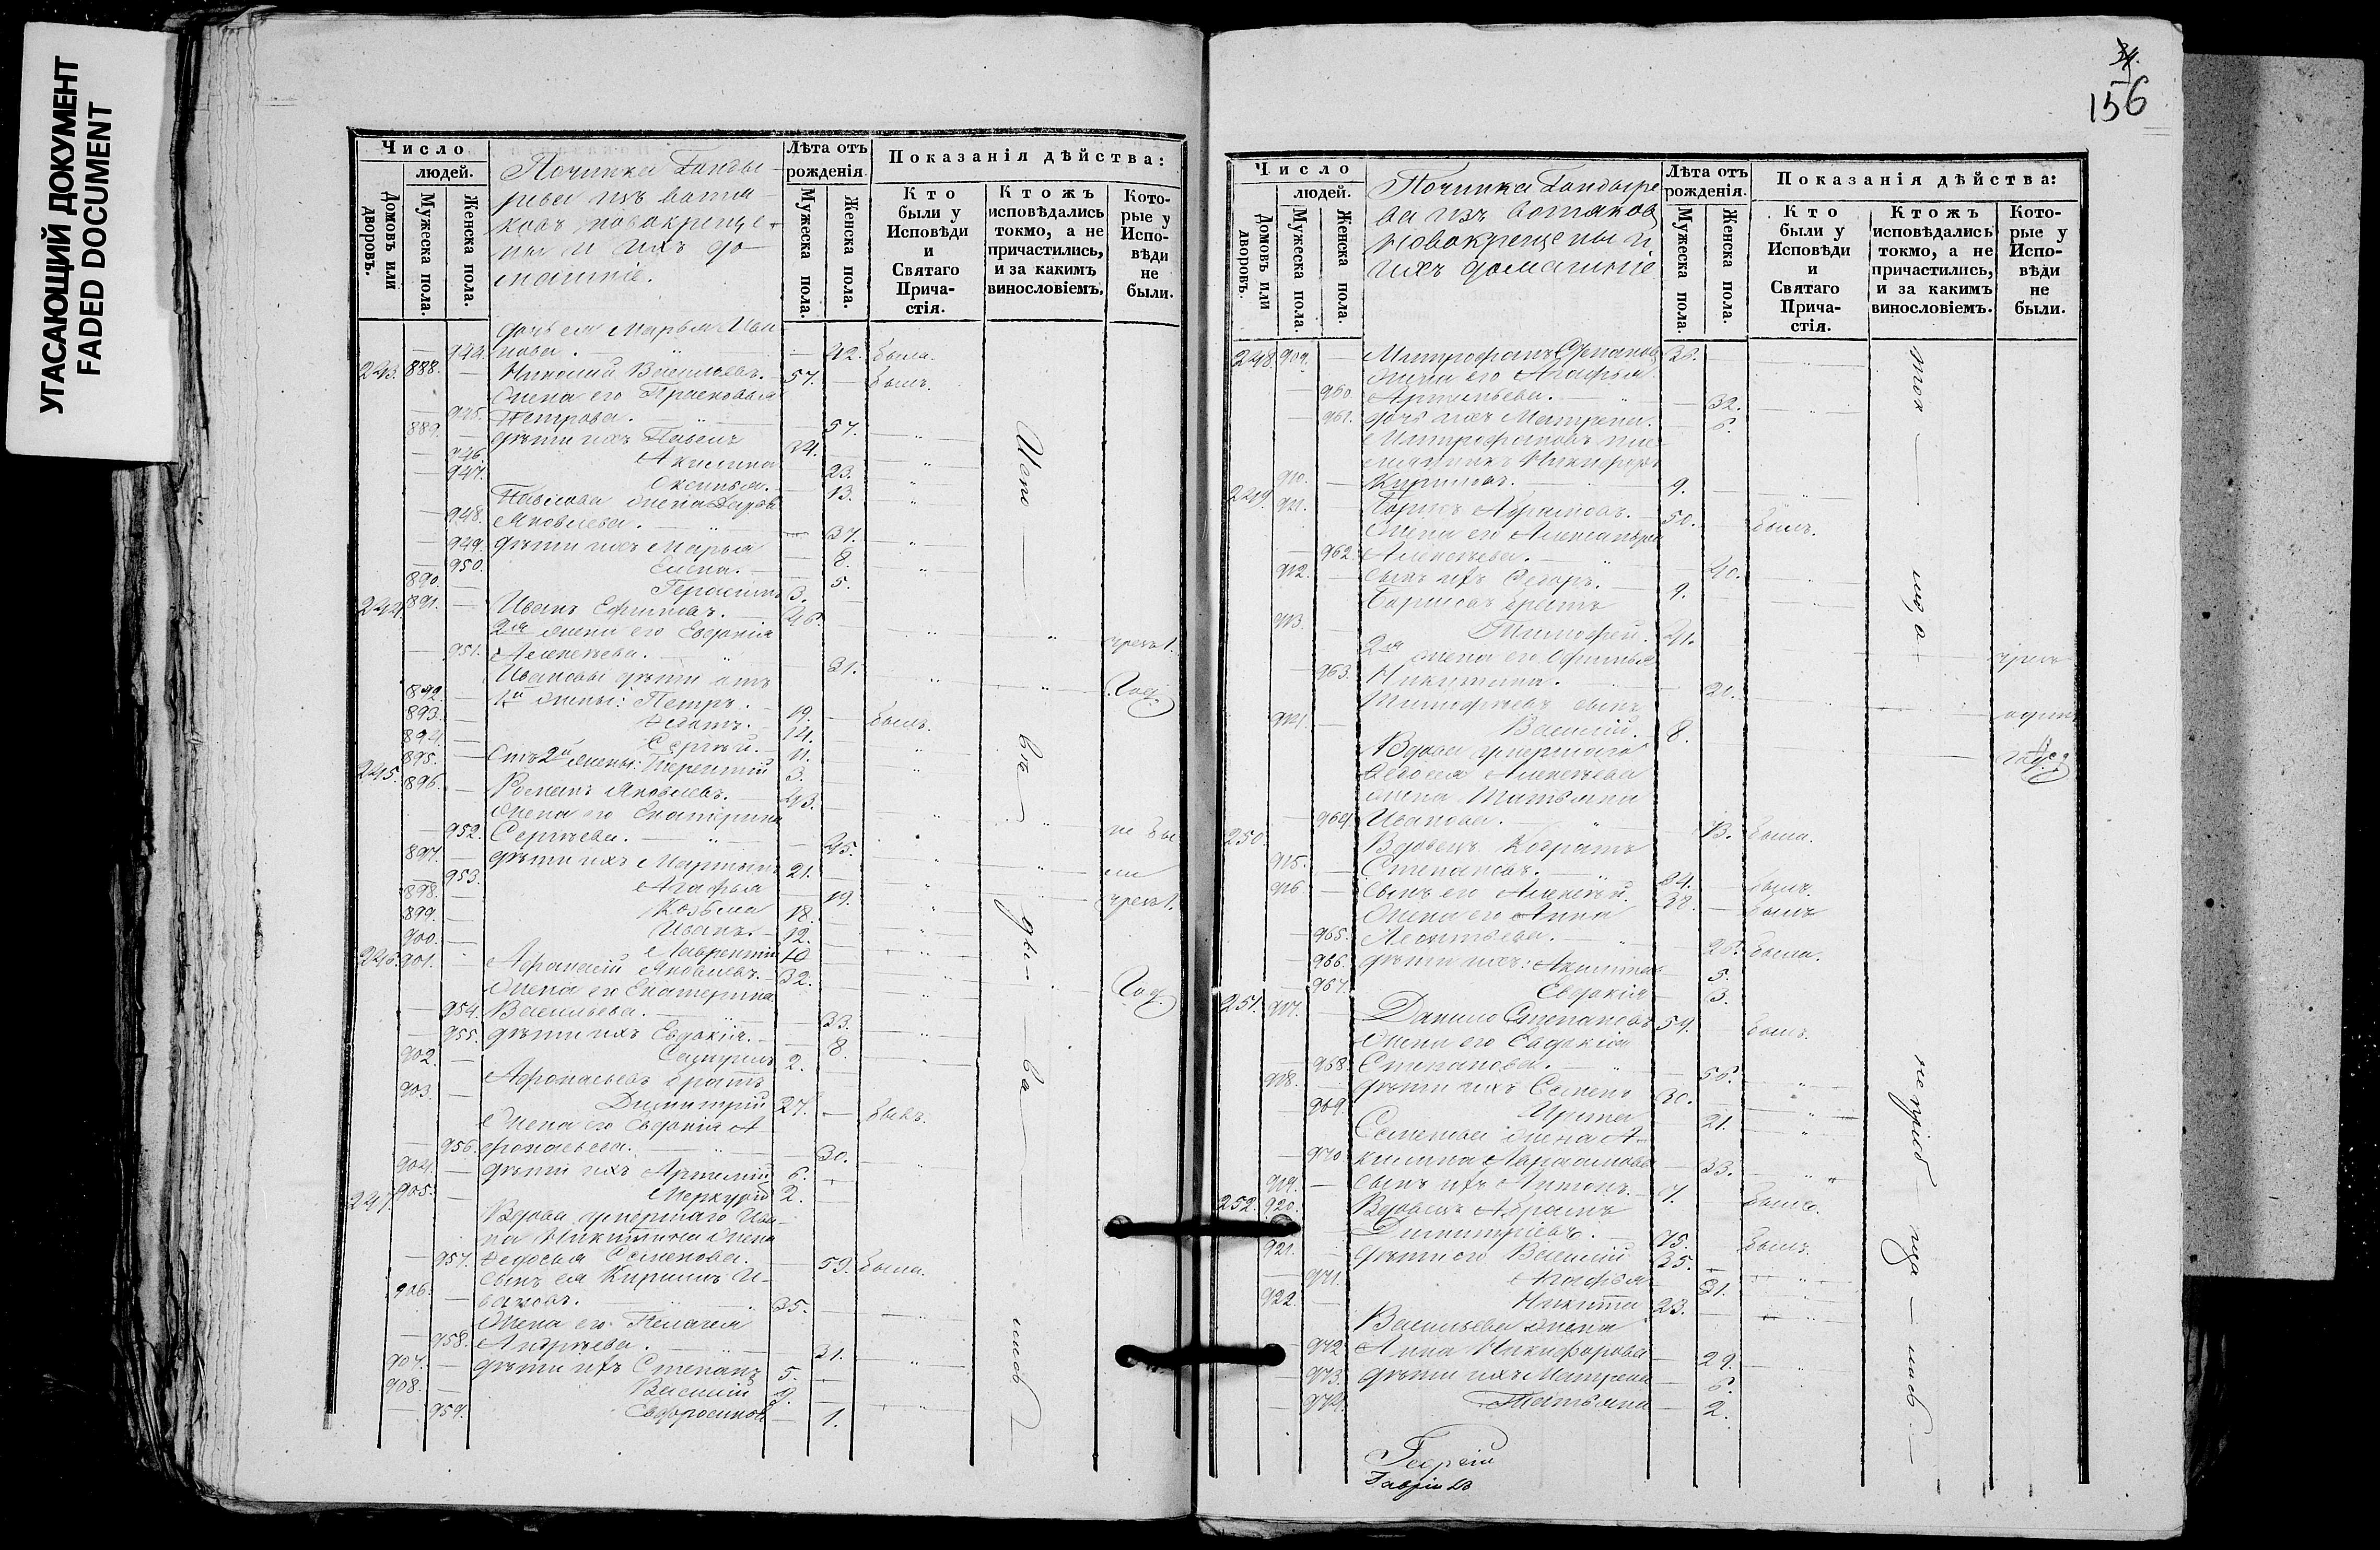 УГАСАЮЩИЙ ДОКУМЕНТ
FADED DOCUMENT
Число
людей.
Домовъ или дворовъ.
Мужеска пола.
Женска пола.
Починка Гонды-
рева изъ вотя-
ковъ новокреще-
ны и ихъ до-
машніе.
Лѣта отъ
рожденія
Мужеска пола.
Женска пола.
Показанія дѣйства:
Кто
были у
Исповѣди
и
Святаго
Прича-
стія.
Ктожъ
исповѣдались
токмо, а не
причастились,
и за какимъ
винословіемъ.
Кото-
рые у
Испо-
вѣди
не
были.
дочь ея Марья Ива-
944. нова. 42. была.
243. 888. Николай Васильевъ. 57. былъ.
Жена его Прасковья
945. Петрова. 57.
889. дѣти ихъ Павелъ 24.
946. Акилина 23.
947. Аксинья. 13.
Павлова жена Дарья
948. Яковлева. 37.
949. дѣти ихъ Марья 8.
950. Елена. 5.
890. Герасимъ 3.
244. 891. Иванъ Ефимовъ. 46.
2я жена его Евдокія
951. Алексѣева. 31.
Ивановы дѣти отъ
892 1й жены: Петръ. 19. былъ.
893. 14.
894. Сергѣй. 11.
895. Отъ 2й жены: Терентій 3.
245. 896. Романъ Яковлевъ. 43.
Жена его Екатерина
952. Сергѣева. 45.
897. дѣти ихъ Мартынъ 21.
953. Агафья 19.
898. Козьма 18.
899. Иванъ. 12.
900. Лаврентій 10
246. 901. Афанасій Яковлевъ. 32.
Жена его Екатерина
954. Васильева. 33.
955. дѣти ихъ Евдокія. 8.
902. 2.
903. Афонасьевъ братъ
Димитрій 27. былъ.
Жена его Евдокія А-
956. фонасьева. 30.
904. дѣти ихъ Артемій 6.
905. Меркурій 2.
247. Вдова умершаго Ива-
на Никитина жена
957. Федосья Семенова. 59. была.
906. сынъ ея Кирилъ И-
вановъ. 35.
Жена его Пелагея
958. Андреева. 31.
907. дѣти ихъ Степанъ 5.
908. Василій
959. 1.
не бы
ли
чрезъ 1.
Год.
156
Число
людей.
Домовъ или дворовъ.
Мужеска пола.
Женска пола.
Починка Гондыре
ва изъ вотяковъ
новокрещены и
ихъ домашніе
Лѣта отъ
рожденія.
Мужеска пола.
Женска пола.
Показанія дѣйства:
Кто
были у
Исповѣди
и
Святаго
Прича-
стія.
Ктожъ
исповѣдались
токмо, а не
причастились,
и за какимъ
винословіемъ.
Кото-
рые у
Испо-
вѣди
не
были.
248. 909. Митрофанъ Степановъ
Жена его Агафья
960. Артемьева. 32.
961. дочь ихъ Матрена. 6.
Митрофановъ пле-
мянникъ Никифоръ
910. Кириловъ. 9.
249. 911. Борисъ Абрамовъ. 50. былъ.
Жена его Александра
962. Алексѣева. 40.
912. сынъ ихъ Федоръ. 9.
Борисовъ братъ
913. Тимофей. 41.
2я жена его Офимья
963. Никитина. 21.
Тимофѣевъ сынъ
914. Василій. 8.
Вдова умершаго
Алексѣева
жена Татьяна
964. Иванова. 73. была.
250. Вдовецъ Кодратъ
915. Степановъ. былъ.
916 сынъ его Алексѣй. 38. былъ
Жена его Анна
965. Леонтьева. 28. была.
966. дѣти ихъ: Акилина 5.
967. Евдокія 3.
251. 917. Данило Степановъ 59. былъ.
Жена его Евдокія
968. Степанова. 58.
918. дѣти ихъ Семенъ 30.
969. Ирина 21.
Семенова жена А-
970. килина Абрамова 33.
919. сынъ ихъ Антонъ. 7.
252. 920. Вдовецъ Абрамъ
Димитріевъ. 75. былъ.
921. дѣти его Василій 35.
971. Агафья 31.
922. Никита 23.
Васильева жена
972 Анна Никифорова 29.
973. дѣти ихъ Матрена 6.
974. Татьяна 2.